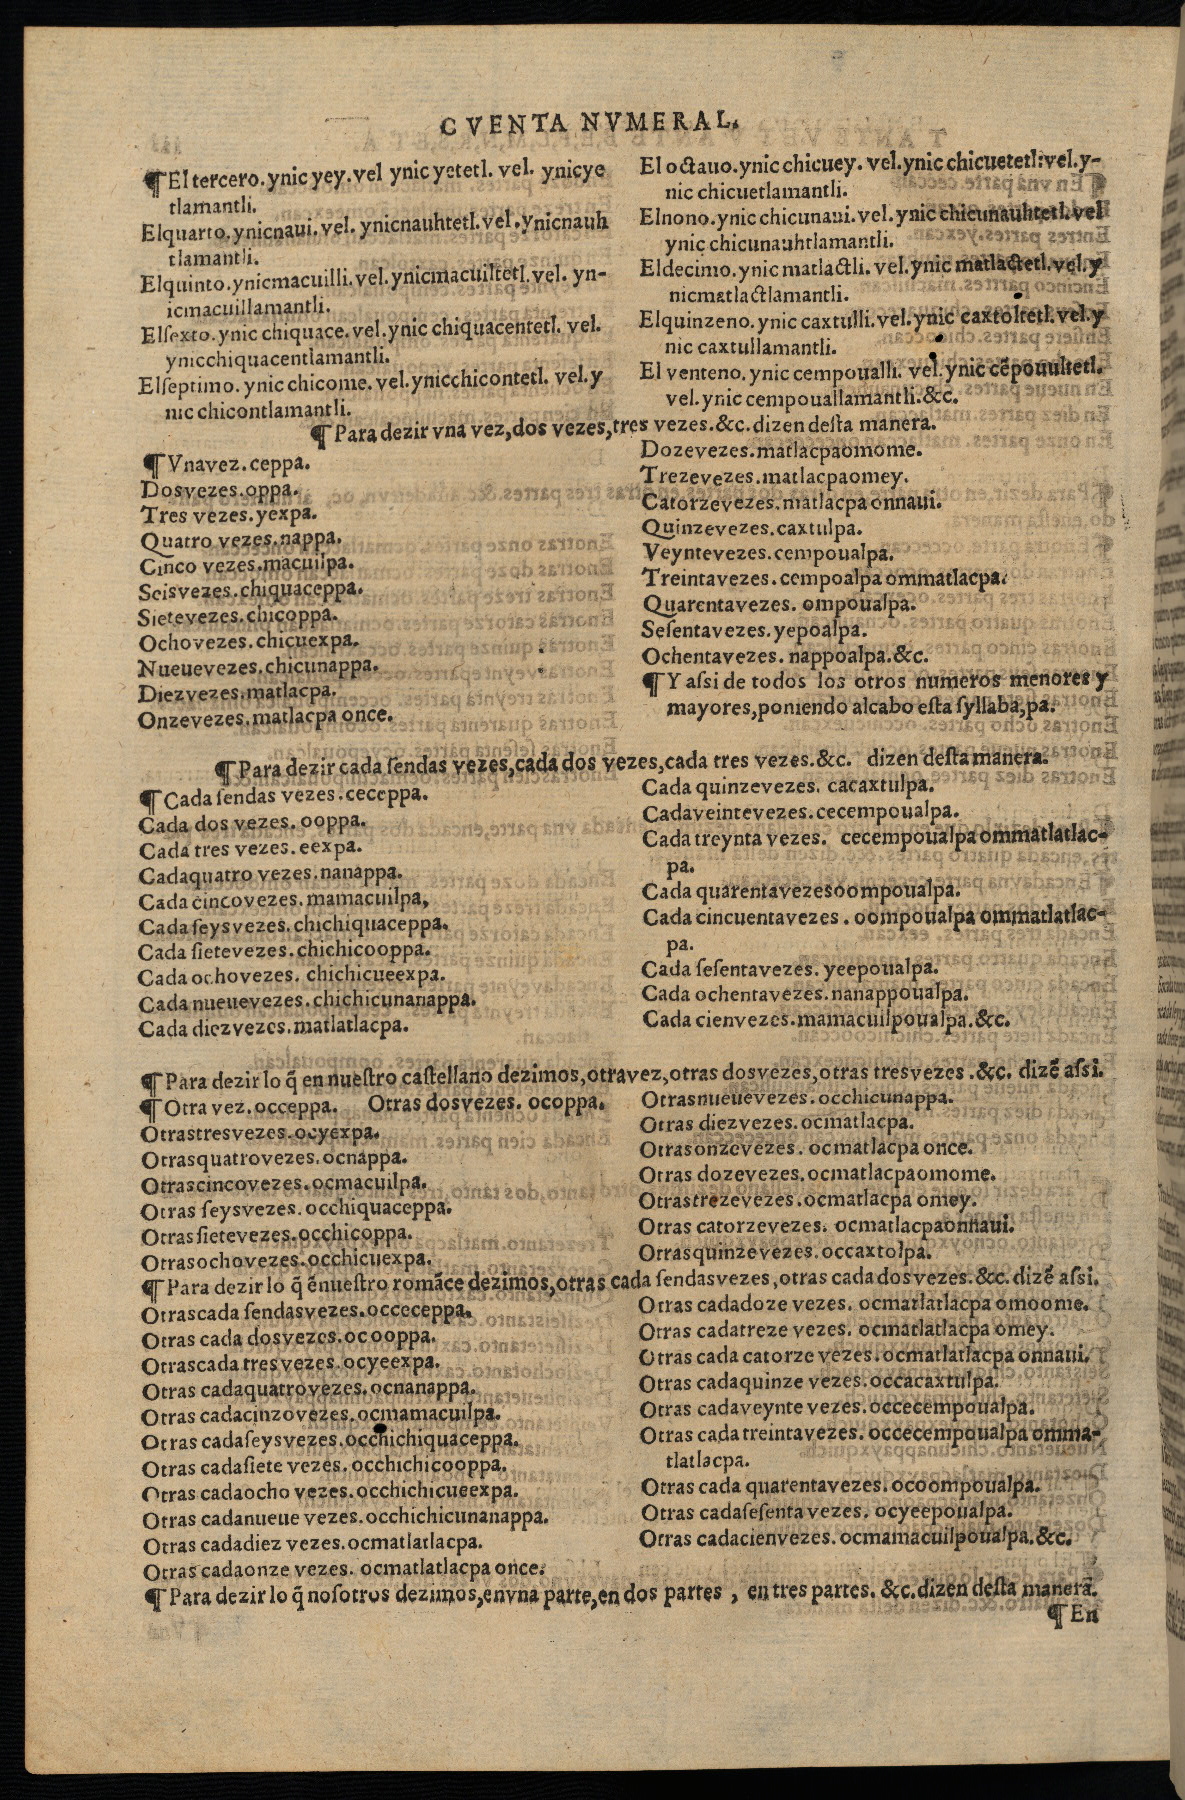 CVENTA NVMERAL.
¶ El tercero. ynic yey. vel ynic yetetl. vel. ynicye
tlamantli.
Elquarto. ynicnaui. vel. ynicnauhtetl. vel. ynicnauh
tlamantli.
Elquinto. ynicmacuilli. vel. ynicmacuiltetl. vel. yn-
icmacuillamantli.
Elſexto. ynic chiquace. vel. ynic chiquacentetl. vel.
ynicchiquacentlamantli.
Elſeptimo. ynic chicome. vel. ynicchicontetl. vel. y
nic chicontlamantli.
El octauo. ynic chicuey. vel. ynic chicuetetl: vel. y-
nic chicuetlamantli.
Elnono. ynic chicunaui. vel. ynic chicunauhtetl. vel
ynic chicunauhtlamantli.
Eldecimo. ynic matlactli. vel. ynic matlactetl. vel. y
nicmatlactlamantli.
Elquinzeno. ynic caxtulli. vel. ynic caxtoltetl. vel. y
nic caxtullamantli.
El venteno. ynic cempoualli. vel. ynic cẽpoualtetl.
vel. ynic cempouallamantli. &c.
¶ Para dezir vna vez, dos vezes, tres vezes. &c. dizen deſta manera.
¶ Vnavez. ceppa.
Dosvezes. oppa.
Tres vezes. yexpa.
Quatro vezes. nappa.
Cinco vezes. macuilpa.
Seisvezes. chiquaceppa.
Sietevezes. chicoppa.
Ochovezes. chicuexpa.
Nueuevezes. chicunappa.
Diezvezes. matlacpa.
Onzevezes. matlacpa once.
Dozevezes. matlacpaomome.
Trezevezes. matlacpaomey.
Catorzevezes. matlacpa onnaui.
Quinzevezes. caxtulpa.
Veyntevezes. cempoualpa.
Treintavezes. cempoalpa ommatlacpa.
Quarentavezes. ompoualpa.
Seſentavezes. yepoalpa.
Ochentavezes. nappoalpa. &c.
¶ Y aſsi de todos los otros numeros menores y
mayores, poniendo alcabo eſta ſyllaba, pa.
¶ Para dezir cada ſendas vezes, cada dos vezes, cada tres vezes. &c. dizen deſta manera.
¶ Cada ſendas vezes. ceceppa.
Cada dos vezes. ooppa.
Cada tres vezes. eexpa.
Cadaquatro vezes. nanappa.
Cada cincovezes. mamacuilpa,
Cada ſeysvezes. chichiquaceppa.
Cada ſietevezes. chichicooppa.
Cada ochovezes. chichicueexpa.
Cada nueuevezes. chichicunanappa.
Cada diezvezes. matlatlacpa.
Cada quinzevezes. cacaxtulpa.
Cadaveintevezes. cecempoualpa.
Cada treynta vezes. cecempoualpa ommatlatlac-
pa.
Cada quarentavezesoompoualpa.
Cada cincuentavezes. oompoualpa ommatlatlac-
pa.
Cada ſeſentavezes. yeepoualpa.
Cada ochentavezes. nanappoualpa.
Cada cienvezes. mamacuilpoualpa. &c.
¶ Para dezir lo q̃ en nueſtro caſtellano dezimos, otravez, otras dosvezes, otras tresvezes. &c. dizẽ aſsi.
¶ Otra vez. occeppa. Otras dosvezes. ocoppa.
Otrastresvezes. ocyexpa.
Otrasquatrovezes. ocnappa.
Otrascincovezes. ocmacuilpa.
Otras ſeysvezes. occhiquaceppa.
Otras ſietevezes. occhicoppa.
Otrasochovezes. occhicuexpa.
Otrasnueuevezes. occhicunappa.
Otras diezvezes. ocmatlacpa.
Otrasonzevezes. ocmatlacpa once.
Otras dozevezes. ocmatlacpaomome.
Otrastrezevezes. ocmatlacpa omey.
Otras catorzevezes. ocmatlacpaonnaui.
Otrasquinzevezes. occaxtolpa.
¶ Para dezir lo q̃ ẽnueſtro romãce dezimos, otras cada ſendasvezes, otras cada dos vezes. &c. dizẽ aſsi.
Otrascada ſendasvezes. occeceppa.
Otras cada dosvezes. ocooppa.
Otrascada tresvezes. ocyeexpa.
Otras cadaquatrovezes. ocnanappa.
Otras cadacinzovezes. ocmamacuilpa.
Otras cadaſeysvezes. occhichiquaceppa.
Otras cadaſiete vezes. occhichicooppa.
Otras cadaocho vezes. occhichicueexpa.
Otras cadanueue vezes. occhichicunanappa.
Otras cadadiez vezes. ocmatlatlacpa.
Otras cadaonze vezes. ocmatlatlacpa once.
Otras cadadoze vezes. ocmatlatlacpa omoome.
Otras cadatreze vezes. ocmatlatlacpa omey.
Otras cada catorze vezes. ocmatlatlacpa onnaui.
Otras cadaquinze vezes. occacaxtulpa.
Otras cadaveynte vezes. occecempoualpa.
Otras cada treintavezes. occecempoualpa omma-
tlatlacpa.
Otras cada quarentavezes. ocoompoualpa.
Otras cadaſeſenta vezes. ocyeepoualpa.
Otras cadacienvezes. ocmamacuilpoualpa. &c.
¶ Para dezir lo q̃ noſotros dezimos, envna parte, en dos partes, en tres partes. &c. dizen deſta manerã.
¶ En